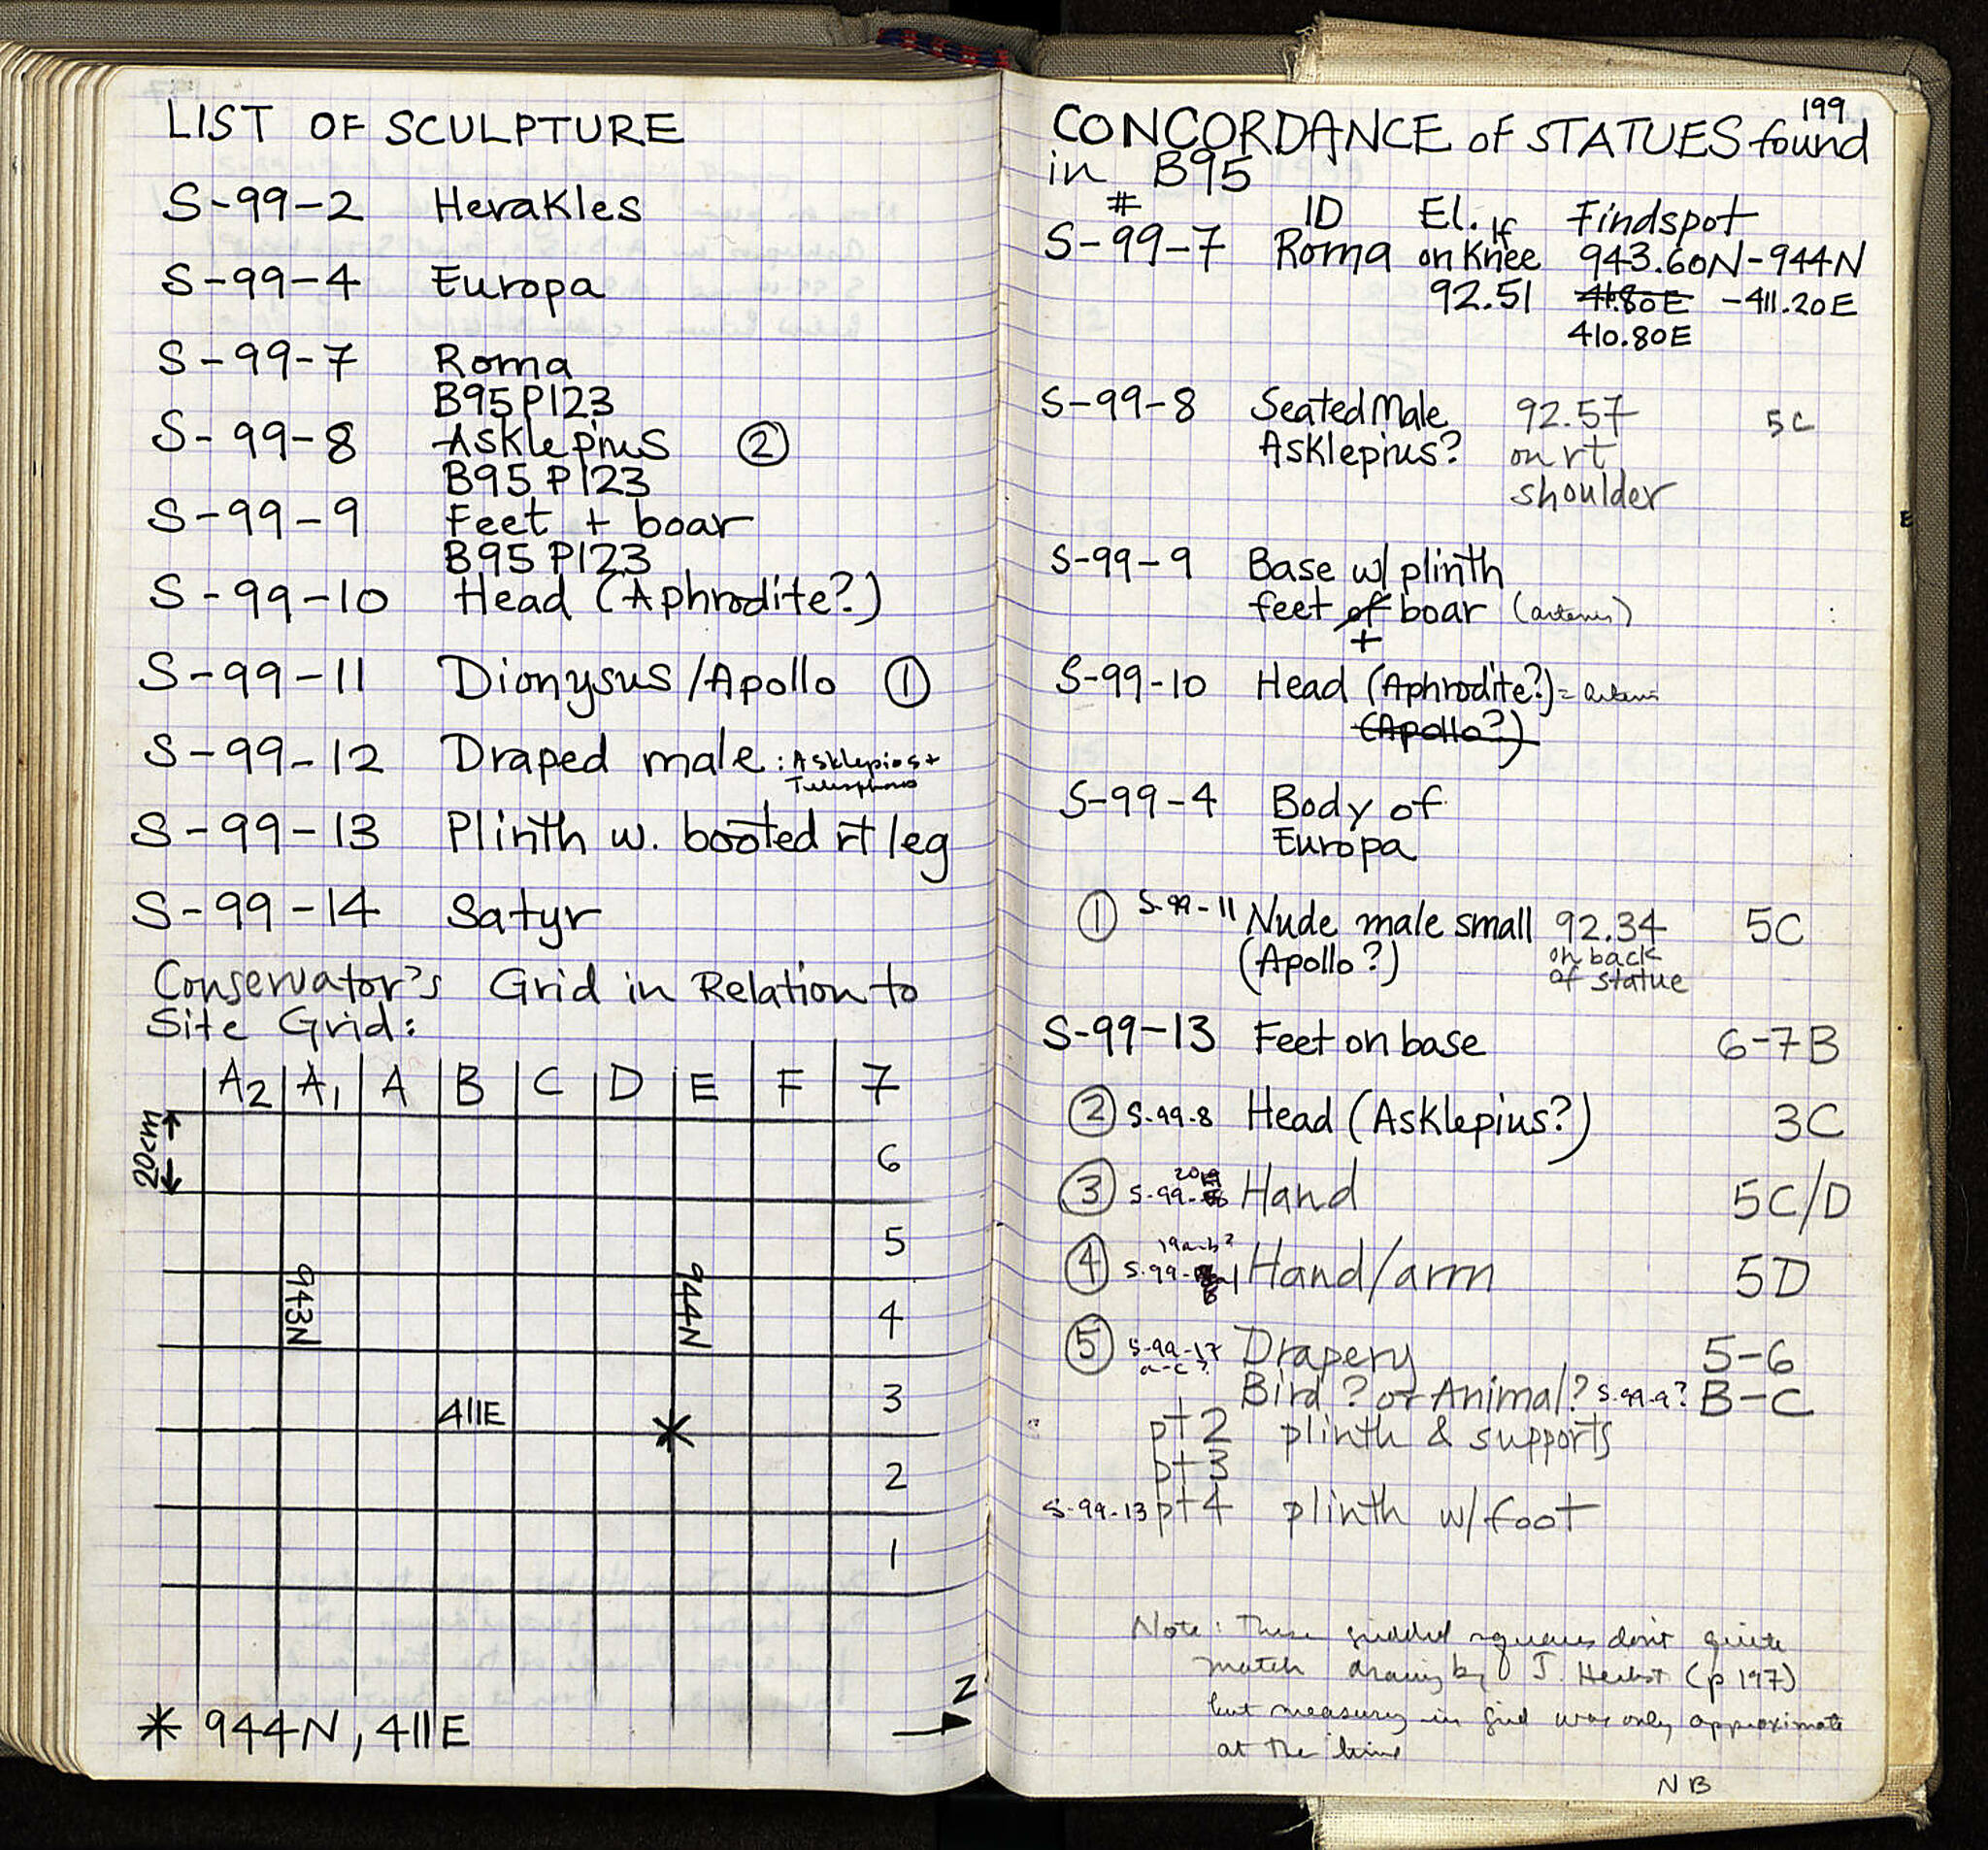 LIST OF SCULPTURE
S-99-2 Herakles
S-99-4 Europa
S-99-7 Roma
B95P123
S-99-8 Asklepius ②
B95 P123
S-99-9 Feet + boar
B95 P123
S-99-10 Head (Aphrodite?)
S-99-11 Dionysus/Apollo ①
S-99-12 Draped male: Asklepios +
Telesphoros
S-99-13 Plinth w. booted rt leg
S-99-14 Satyr
Conservator's Grid in Relation to
Site Grid:
A2 A1 A B C D E F 7
20cm
6
5
943N 944N
4
3
411E
2
1
N
* 944N, 411E
199
CONCORDANCE of STATUES found
in B95
# ID El. Findspot
S-99-7 Roma on lf Knee 943.60N-944N
92.51 411.80E -411.20E
410.80E
S-99-8 Seated Male 92.57 5C
Asklepius? on rt
shoulder
S-99-9 Base w/ plinth
feet of boar (artemis)
+
S-99-10 Head (Aphrodite?) = artemis
(Apollo?)
S-99-4 Body of
Europa
① S-99-11 Nude male small 92.34 5C
(Apollo?) on back
of statue
S-99-13 Feet on base 6-7B
② S-99-8 Head (Asklepius?) 3C
③ S-99- 20 Hand 5C/D
④ S-99- 19a-b? Hand/arm 5D
⑤ S-99-17 Drapery 5-6
a-c? Bird? or Animal? S-99-9? B-C
pt 2 plinth & supports
pt 3
S-99-13 pt 4 plinth w/ foot
Note: These gridded squares don't quite
match drawing by J. Herbst (p 197)
but measuring in grid was only approximate
at the time
NB